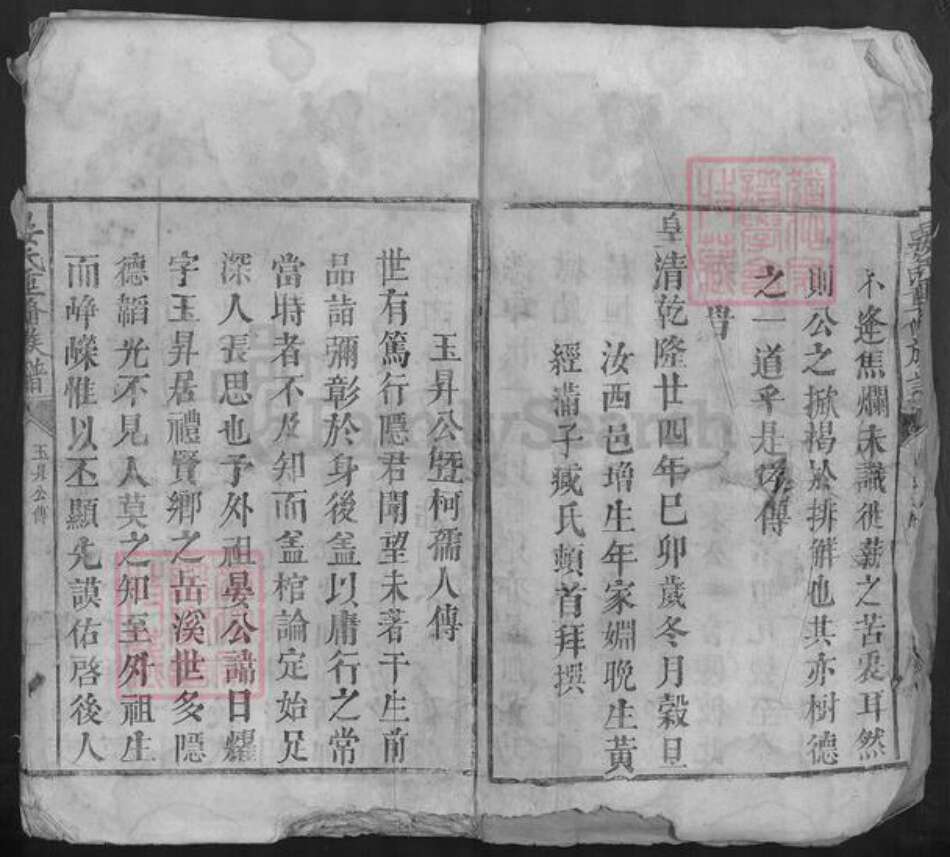 不逢焦爛未識徙薪之苦衷耳然
則公之掀揭於排解也其亦樹德
之一道乎是為傳
皇清乾隆廿四年巳卯歲冬月穀旦
汝西邑增生年家姻晩生黃
經滿子臧氏頼首拜撰
玉昇公暨柯孺人傳
世有篤行隱君聞望未著于生前
品詣彌彰於身後盖以庸行之常
當時者不及知而盖棺論定始足
深人長思也予外祖晏公諱日耀
字玉昇居禮賢鄉之岳溪世多隱
德韜光不見人莫之知至外祖生
而崢嶸惟以丕顯先謨佑啓後人
玉昇公傳
FamilySearch